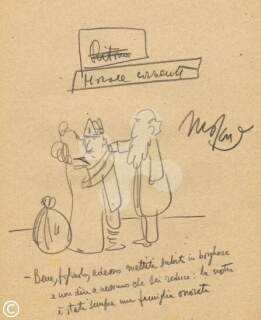 Ritorno
Morale corrente
– Bene, figliolo, adesso mettiti subito in borghese
e non dire a nessuno che sei reduce: la nostra
è stata sempre una famiglia onesta.
©